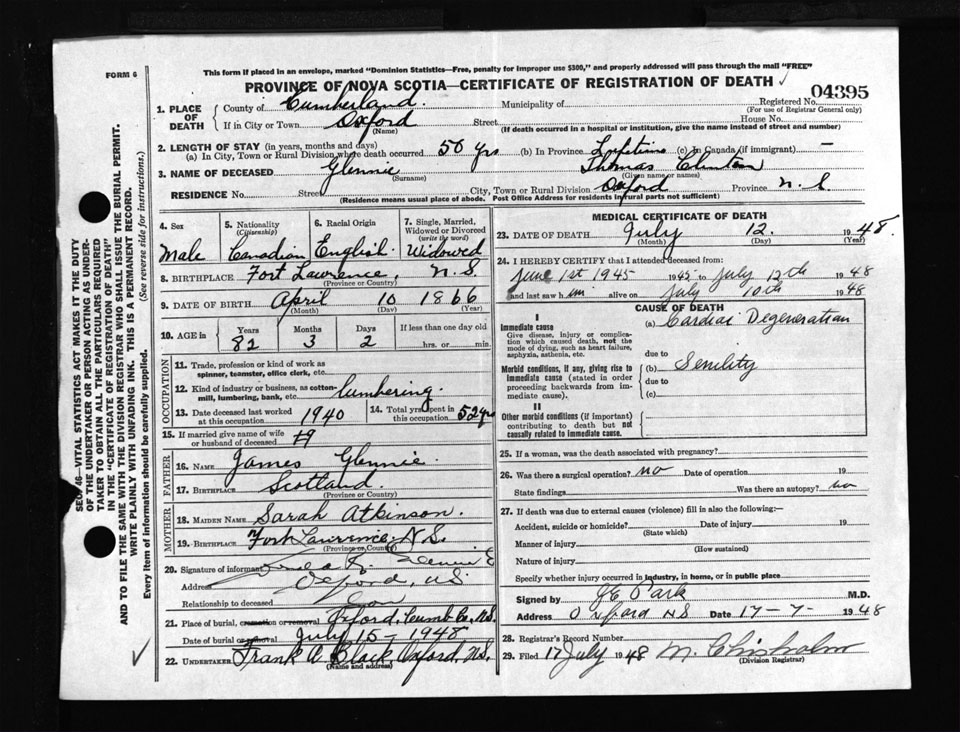 This form if placed in an envelope, marked "Dominion Statistics—Free, penalty for improper use $300," and properly addressed will pass through the mail "FREE"
FORM 6
PROVINCE OF NOVA SCOTIA—CERTIFICATE OF REGISTRATION OF DEATH
04395
1. PLACE OF DEATH
County of Cumberland. Municipality of Registered No.
(For use of Registrar General only)
If in City or Town Oxford Street House No.
(Name) (If death occurred in a hospital or institution, give the name instead of street and number)
2. LENGTH OF STAY (in years, months and days)
(a) In City, Town or Rural Division where death occurred 50 yrs (b) In Province Lifetime (c) In Canada (if immigrant) —
3. NAME OF DECEASED Glennie Thomas Clinton
(Surname) (Given name or names)
RESIDENCE No. Street City, Town or Rural Division Oxford Province N.S.
(Residence means usual place of abode. Post Office Address for residents in rural parts not sufficient)
4. Sex Male
5. Nationality (Citizenship) Canadian
6. Racial Origin English
7. Single, Married, Widowed or Divorced (write the word) Widowed
8. BIRTHPLACE Fort Lawrence, N.S.
(Province or Country)
9. DATE OF BIRTH April 10 1866
(Month) (Day) (Year)
10. AGE in Years Months Days If less than one day old
82 3 2 hrs. or min.
OCCUPATION
11. Trade, profession or kind of work as spinner, teamster, office clerk, etc.
12. Kind of industry or business, as cotton-mill, lumbering, bank, etc. lumbering.
13. Date deceased last worked at this occupation 1940
14. Total yrs. spent in this occupation 52 yrs
15. If married give name of wife or husband of deceased
FATHER
16. NAME James Glennie.
17. BIRTHPLACE Scotland.
(Province or Country)
MOTHER
18. MAIDEN NAME Sarah Atkinson.
19. BIRTHPLACE Fort Lawrence, N.S.
(Province or Country)
20. Signature of informant Glennie
Address Oxford, N.S.
Relationship to deceased Son
21. Place of burial, cremation or removal Oxford, Cumb Co., N.S.
Date of burial or removal July 15 - 1948
22. UNDERTAKER Frank A Black, Oxford, N.S.
(Name and address)
MEDICAL CERTIFICATE OF DEATH
23. DATE OF DEATH July 12. 1948.
(Month) (Day) (Year)
24. I HEREBY CERTIFY that I attended deceased from:
June 1st 1945 1945 to July 12th 1948
and last saw him alive on July 10th 1948
CAUSE OF DEATH
I
Immediate cause
Give disease, injury or complication which caused death, not the mode of dying, such as heart failure, asphyxia, asthenia, etc.
(a) Cardiac Degeneration
due to
Morbid conditions, if any, giving rise to immediate cause (stated in order proceeding backwards from immediate cause).
(b) Senility
due to
(c)
II
Other morbid conditions (if important) contributing to death but not causally related to immediate cause.
25. If a woman, was the death associated with pregnancy?
26. Was there a surgical operation? no Date of operation 19
State findings Was there an autopsy? no
27. If death was due to external causes (violence) fill in also the following:—
Accident, suicide or homicide? Date of injury 19
(State which)
Manner of injury
(How sustained)
Nature of injury
Specify whether injury occurred in industry, in home, or in public place
Signed by M.D.
Address Oxford NS Date 17-7- 1948
28. Registrar's Record Number
29. Filed 17 July 1948 M. Chisholm
(Division Registrar)
SEC. 46—VITAL STATISTICS ACT MAKES IT THE DUTY
OF THE UNDERTAKER OR PERSON ACTING AS UNDER-
TAKER TO OBTAIN ALL THE PARTICULARS REQUIRED
IN THE "CERTIFICATE OF REGISTRATION OF DEATH"
AND TO FILE THE SAME WITH THE DIVISION REGISTRAR WHO SHALL ISSUE THE BURIAL PERMIT.
WRITE PLAINLY WITH UNFADING INK. THIS IS A PERMANENT RECORD.
Every item of information should be carefully supplied. (See reverse side for instructions.)